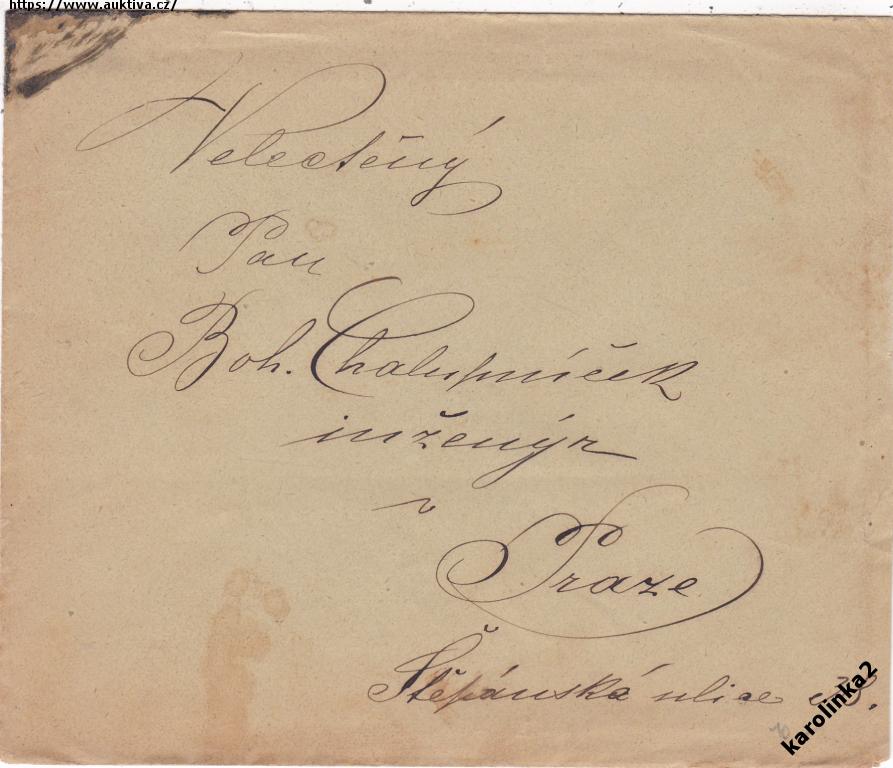 https://www.auktiva.cz/
Velectěný
Pan
Boh. Chalupníček
inženýr
v
Praze
Štěpánská ulice
karolinka2